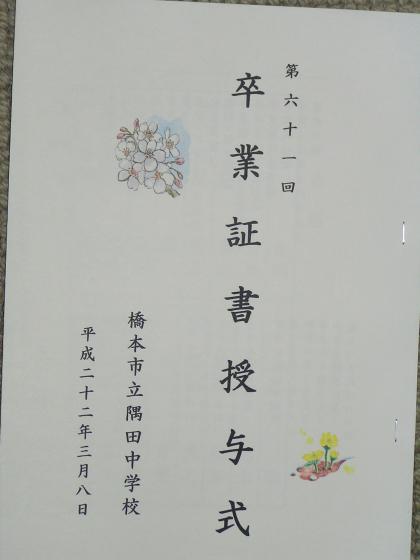 第六十一回
卒業証書授与式
橋本市立隅田中学校
平成二十二年三月八日